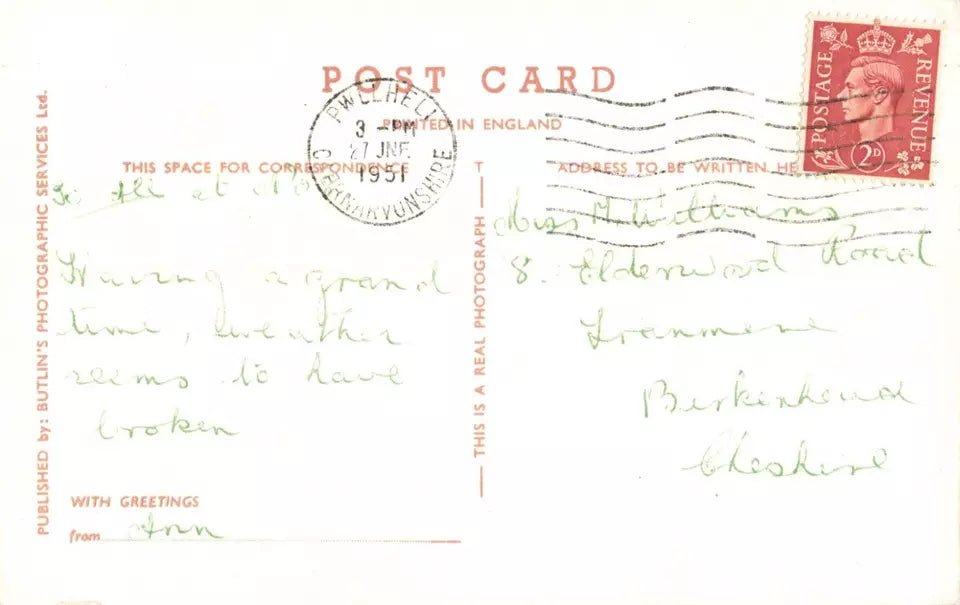 POST CARD
PRINTED IN ENGLAND
PWLLHELI
3 - PM
27 JNE
1951
CAERNARVONSHIRE
POSTAGE
REVENUE
2D
THIS SPACE FOR CORRESPONDENCE
ADDRESS TO BE WRITTEN HE
To All at
Having a grand
time, weather
seems to have
broken
WITH GREETINGS
from Ann
Miss M Williams
8. Elderwood Road
Tranmere
Birkenhead
Cheshire
THIS IS A REAL PHOTOGRAPH
PUBLISHED by: BUTLIN'S PHOTOGRAPHIC SERVICES Ltd.